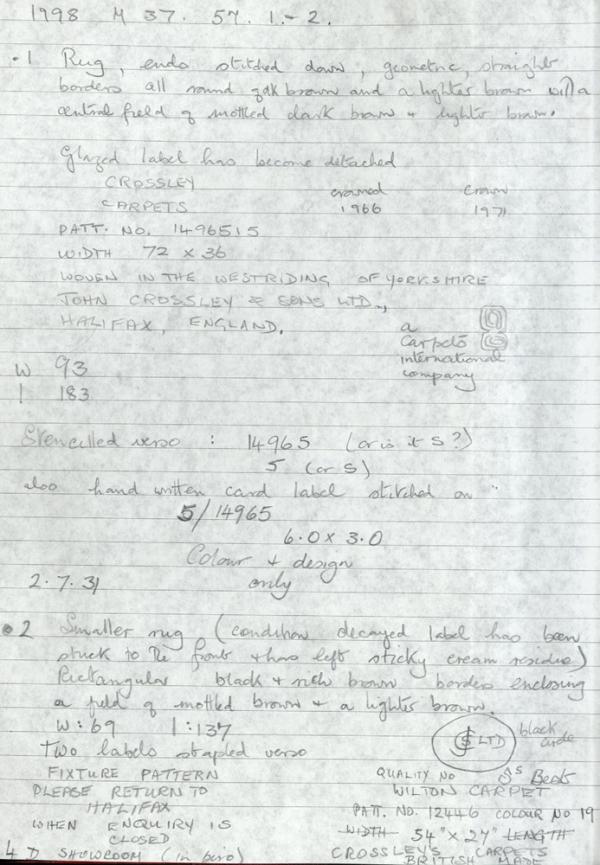 1998 M 37. 57. 1.-2.
.1 Rug, ends stitched down, geometric, straight
borders all round oak brown and a lighter brown with a
central field of mottled dark brown + lighter brown.
Glazed label has become detached
CROSSLEY crowned Crown
CARPETS 1966 1971
PATT. NO. 1496515
WIDTH 72 x 36
WOVEN IN THE WESTRIDING OF YORKSHIRE
JOHN CROSSLEY & SONS LTD.,
HALIFAX, ENGLAND.
a
Carpets
international
company
W 93
l 183
Stencilled verso : 14965 (or is it S?)
5 (or S)
also hand written card label stitched on "
5/14965
6.0 x 3.0
Colour + design
only
2.7.31
.2 Smaller rug (condition decayed label has been
stuck to the front + has left sticky cream residue)
Rectangular black + rich brown borders enclosing
a field of mottled brown + a lighter brown.
W: 69 l: 137
Two labels stapled verso
LTD black
FIXTURE PATTERN
PLEASE RETURN TO
HALIFAX
WHEN ENQUIRY IS
CLOSED
4 D SHOWROOM (in biro)
QUALITY NO Best
WILTON CARPET
PATT. NO. 12446 COLOUR NO 19
WIDTH 54" x 27" LENGTH
CROSSLEY'S CARPETS
BRITISH MADE